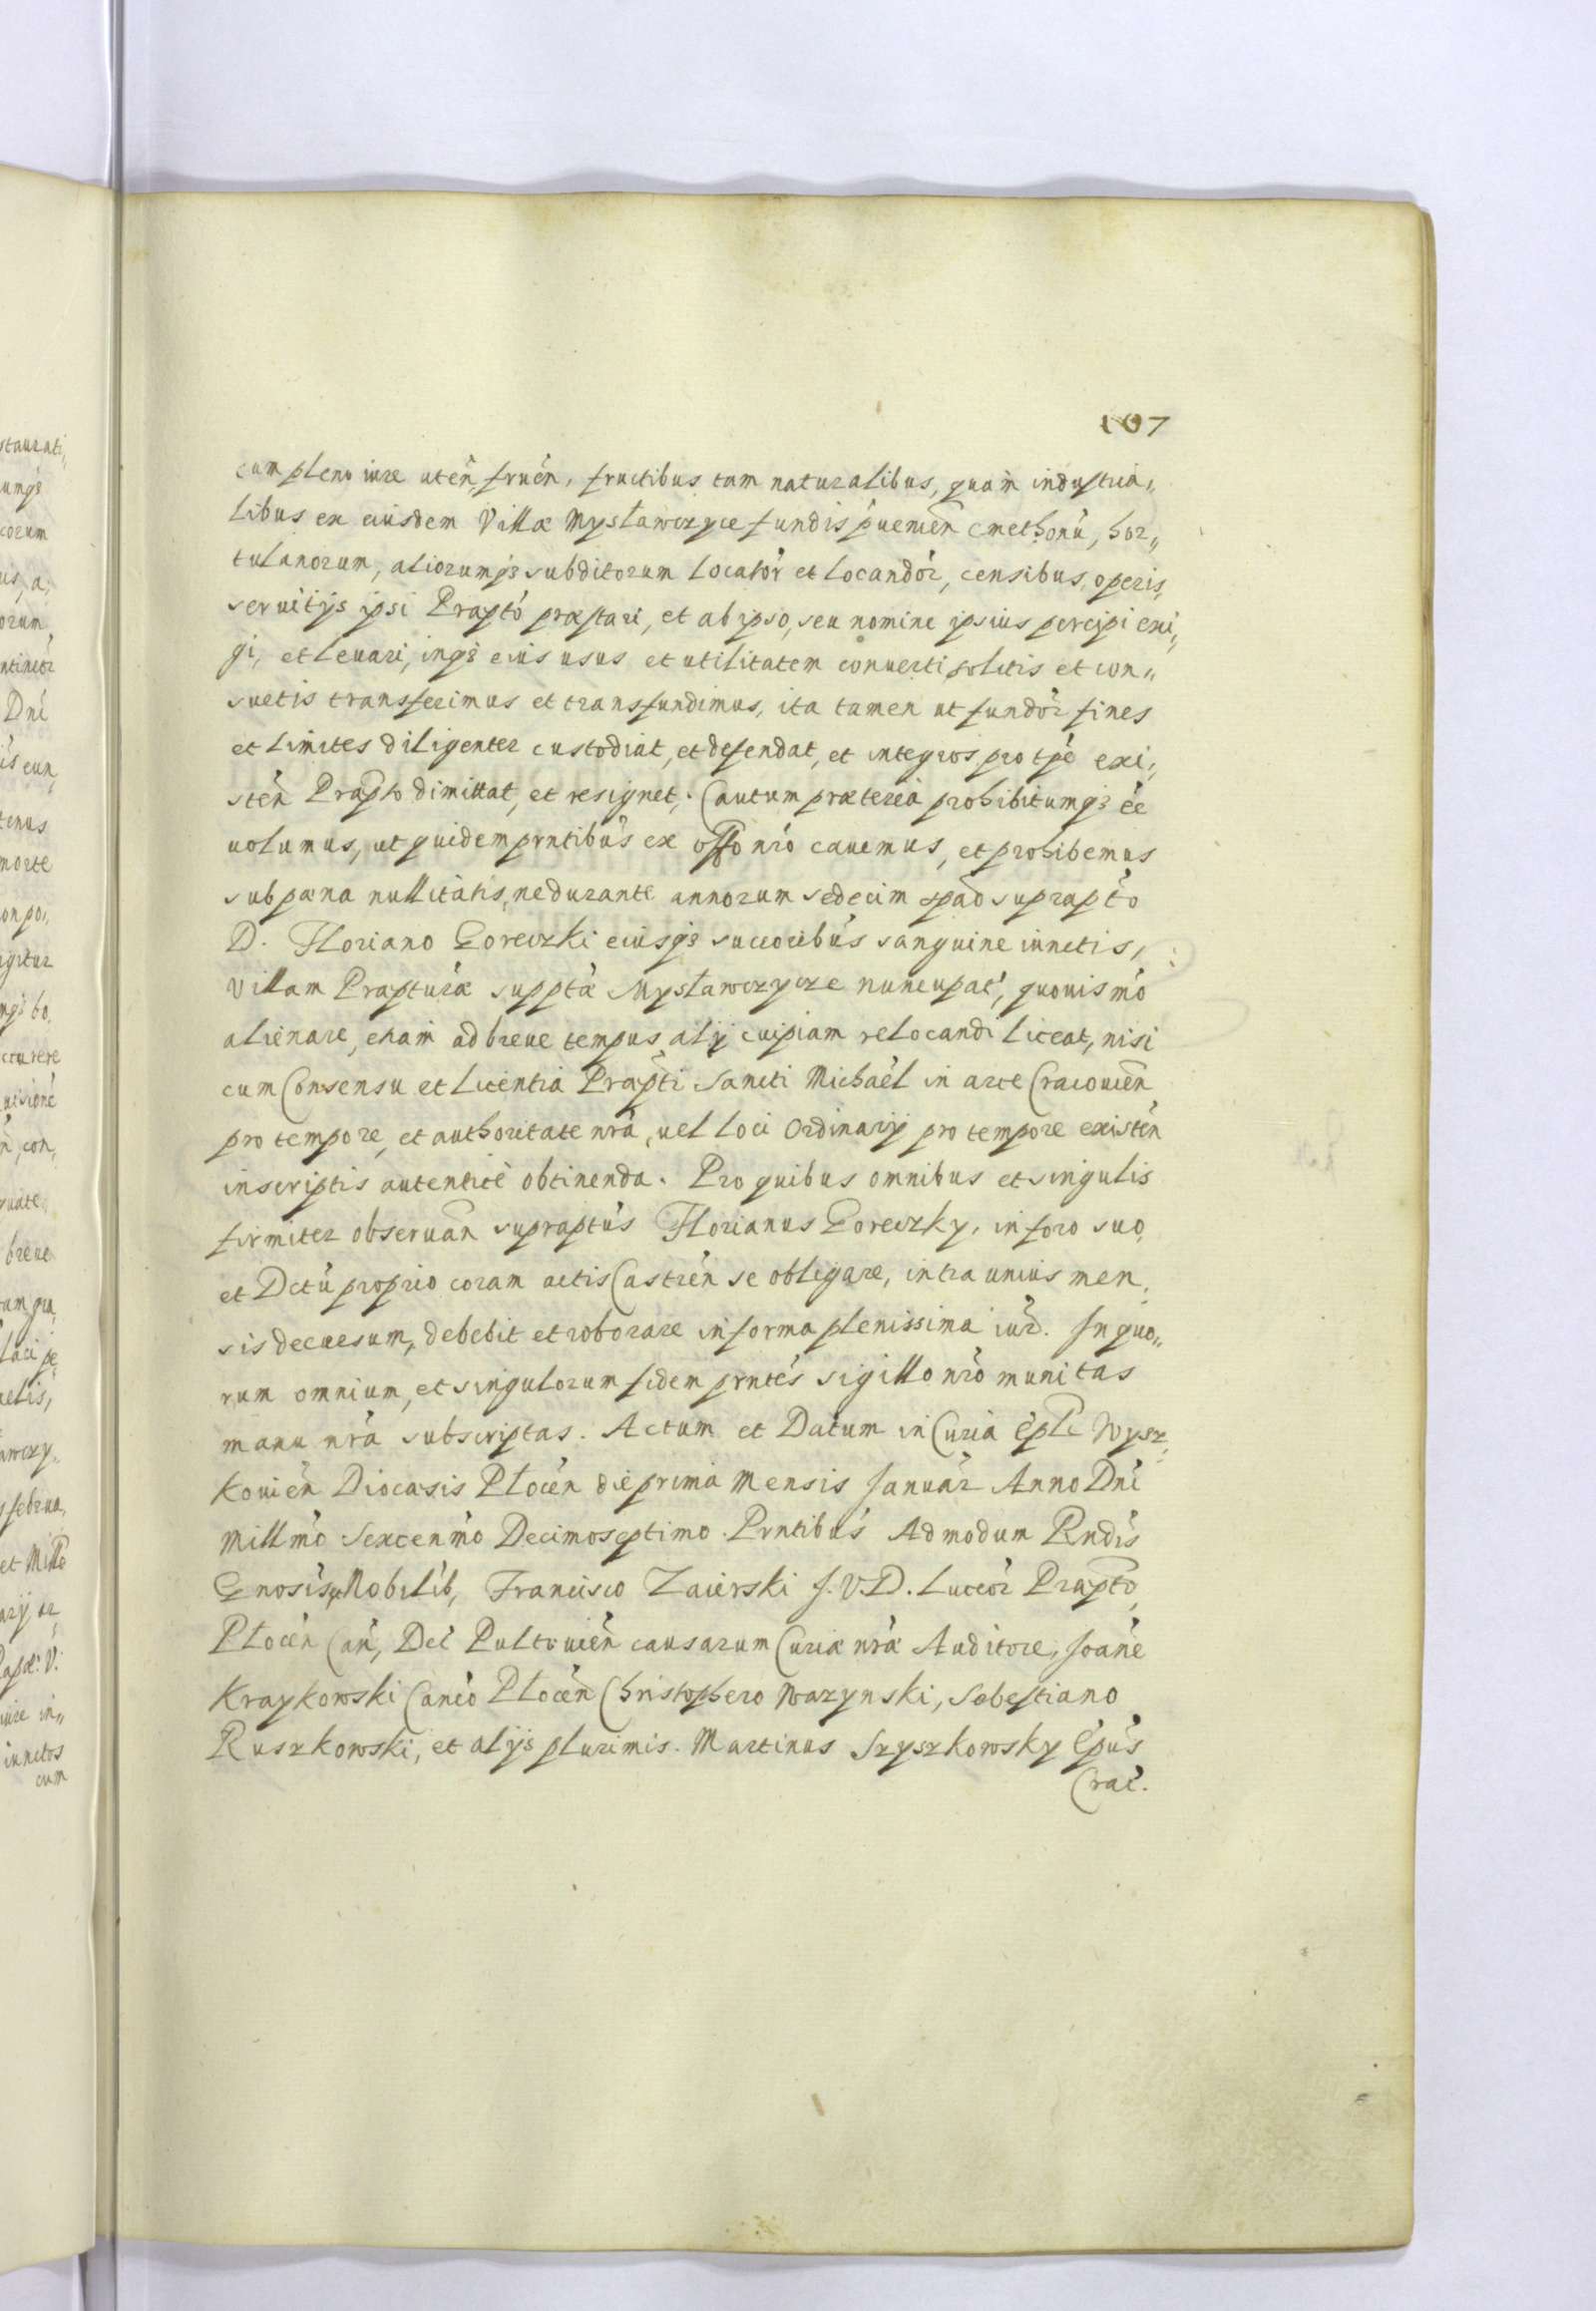 107
cum pleno iure utèn, fruèn, fructibus tam naturalibus, quam industria„
libus ex eiusdem Villæ Myslawczyce fundis puenien cmethonù, hor„
tulanorum, aliorumqз subditorum locatòr et locandòr, censibus, operis,
seruitÿs ipsi Prapto præstari, et ab ipso, seu nomine ipsius percipi exi„
gi, et leuari, inqз eius usus et utilitatem conuerti solitis et con„
suetis transferimus et transfundimus, ita tamen ut fundòr fines
et limites diligenter custodiat, et defendat, et integros pro tpè exi„
stèn Prapto dimittat, et resignet. Cautum præterea prohibitumqз èe
uolumus, ut quidem prntibùs ex offo nrò cauemus, et prohibemus
sub pœna nullitatis, ne durante annorum sedecim spaò suprapto
D. Floriano Goreczki eiusqз succoribùs sanguine iunctis,
Villam Prapturæ supptæ Myslawczycze nuncupat, quouis mò
alienare, etiam ad breue tempus alÿ cuipiam relocandi liceat, nisi
cum Consensu et licentia Prapti Sancti Michaèl in arce Cracouièn
pro tempore, et authoritate nrà, uel loci Ordinarÿ pro tempore existèn
inscriptis autenticè obtinenda. Pro quibus omnibus et singulis
firmiter obseruàn supraptùs Florianus Goreczky, in foro suo,
et Dctù proprio coram actis Castrèn se obligare, intra unius men„
sis decursum, debebit et roborare in forma plenissima iurò. In quo„
rum omnium, et singulorum fidem prntès sigillo nrò munitas
manu nrà subscriptas. Actum et Datum in Curia Epli Wysz„
kouièn Diocæsis Plocèn die prima Mensis Januàr Anno Dnì
Millmò Sexcenmò Decimoseptimo. Prntibùs Admodum Rndìs
Gnosìs, Nobilìb, Francisco Zaierski J.V.D. Luceòr Prapto,
Plocèn Càn, Dei Pultouièn causarum Curiæ nræ Auditore, Joàne
Kraykowski Canèo Plocèn Christophero Wazynski, Sebestiano
Ruszkowski, et alÿs plurimis. Martinus Szyszkowsky Epùs
Crac.